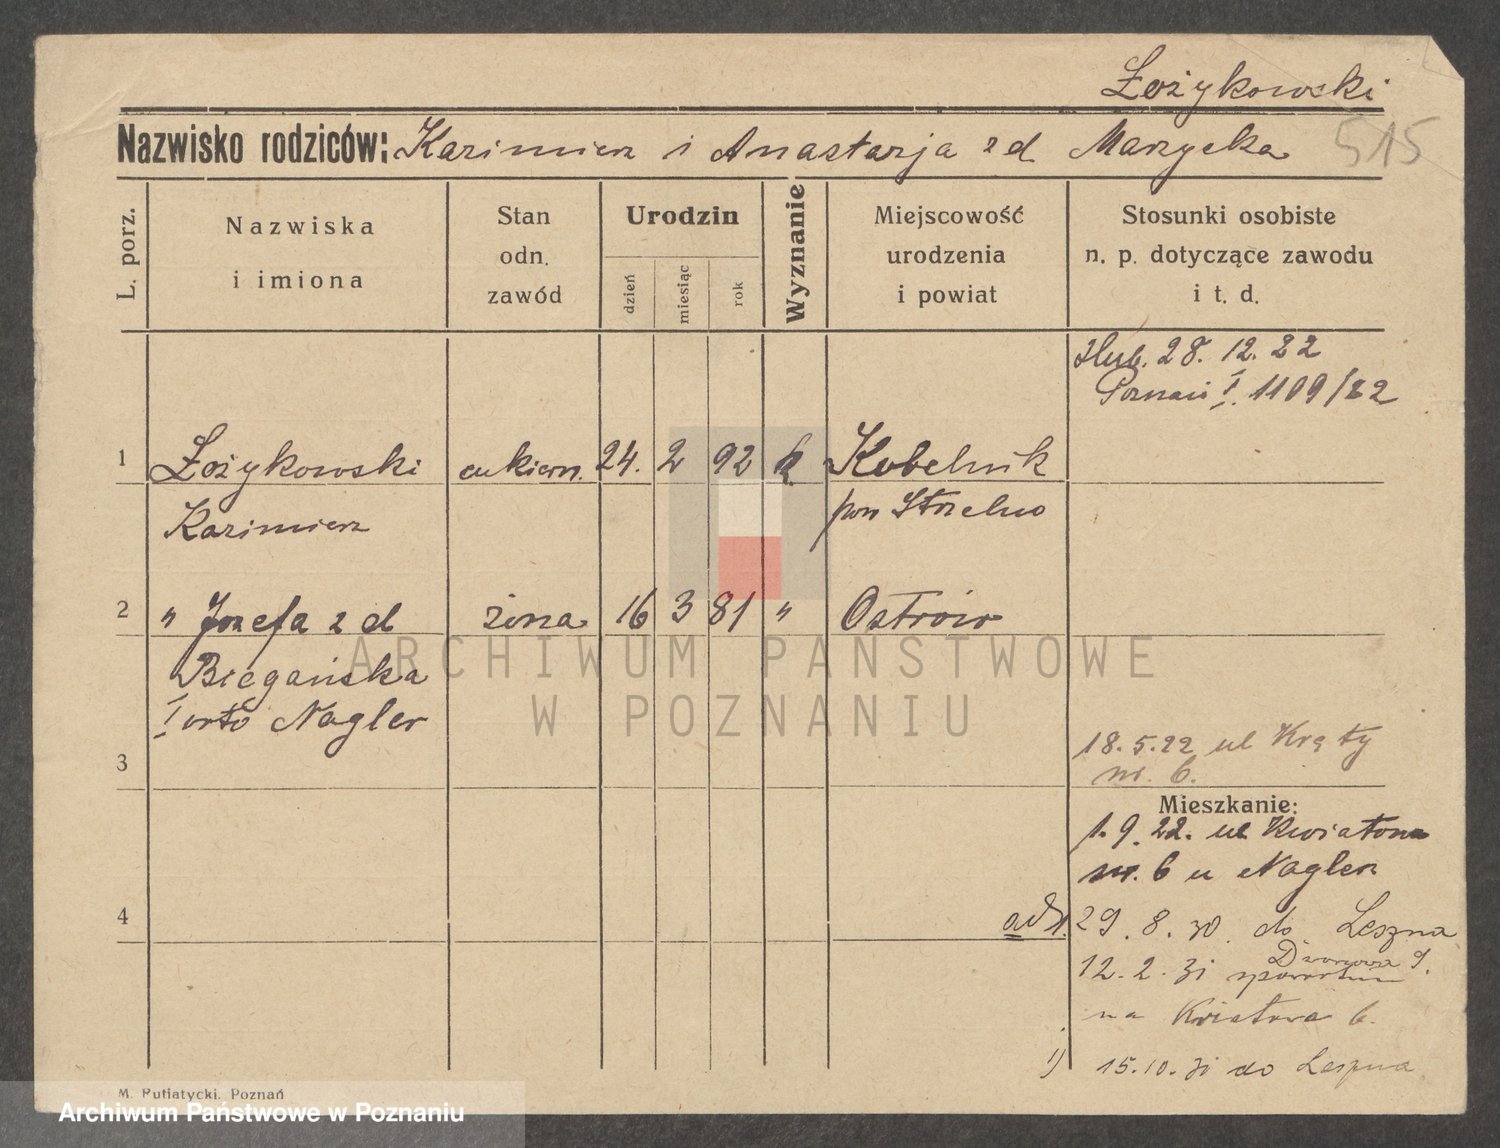 Łożykowski
Nazwisko rodziców: Kazimierz i Anastazja z d. Marzycka
515
L. porz.
Nazwiska
i imiona
Stan
odn.
zawód
Urodzin
dzień
miesiąc
rok
Wyznanie
Miejscowość
urodzenia
i powiat
Stosunki osobiste
n. p. dotyczące zawodu
i t. d.
ślub. 28. 12. 22
Poznań I. 1109/22
1 Łożykowski cukiern. 24. 2 92 k Kobelnik
Kazimierz pow Strzelno
2 " Józefa z d żona 16 3 81 " Ostrów
Biegańska
I voto Nagler
3
18.5.22 ul Kręty
nr. 6.
Mieszkanie:
1.9.22. ul Kwiatowa
nr. 6 u Nagler
4
ad 1. 29. 8. 30 do Leszna
Dworcowa 9.
12. 2. 31 z powrotem
na Kwiatowa 6.
1) 15.10.31 do Leszna
M. Putiatycki, Poznań
ARCHIWUM PAŃSTWOWE
W POZNANIU
Archiwum Państwowe w Poznaniu